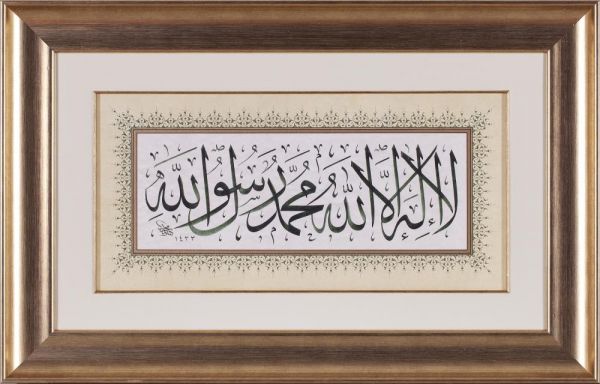 لا إله إلا الله محمد رسول الله
١٤٣٣